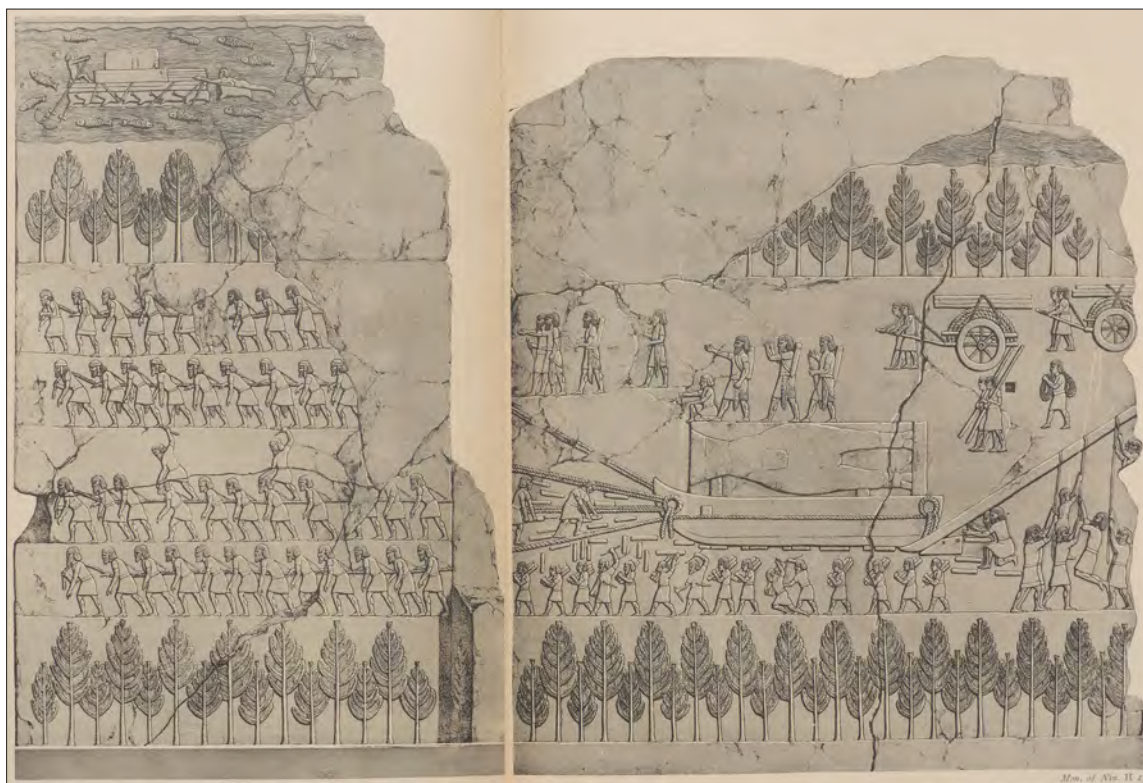 Mon. of Nin. II.